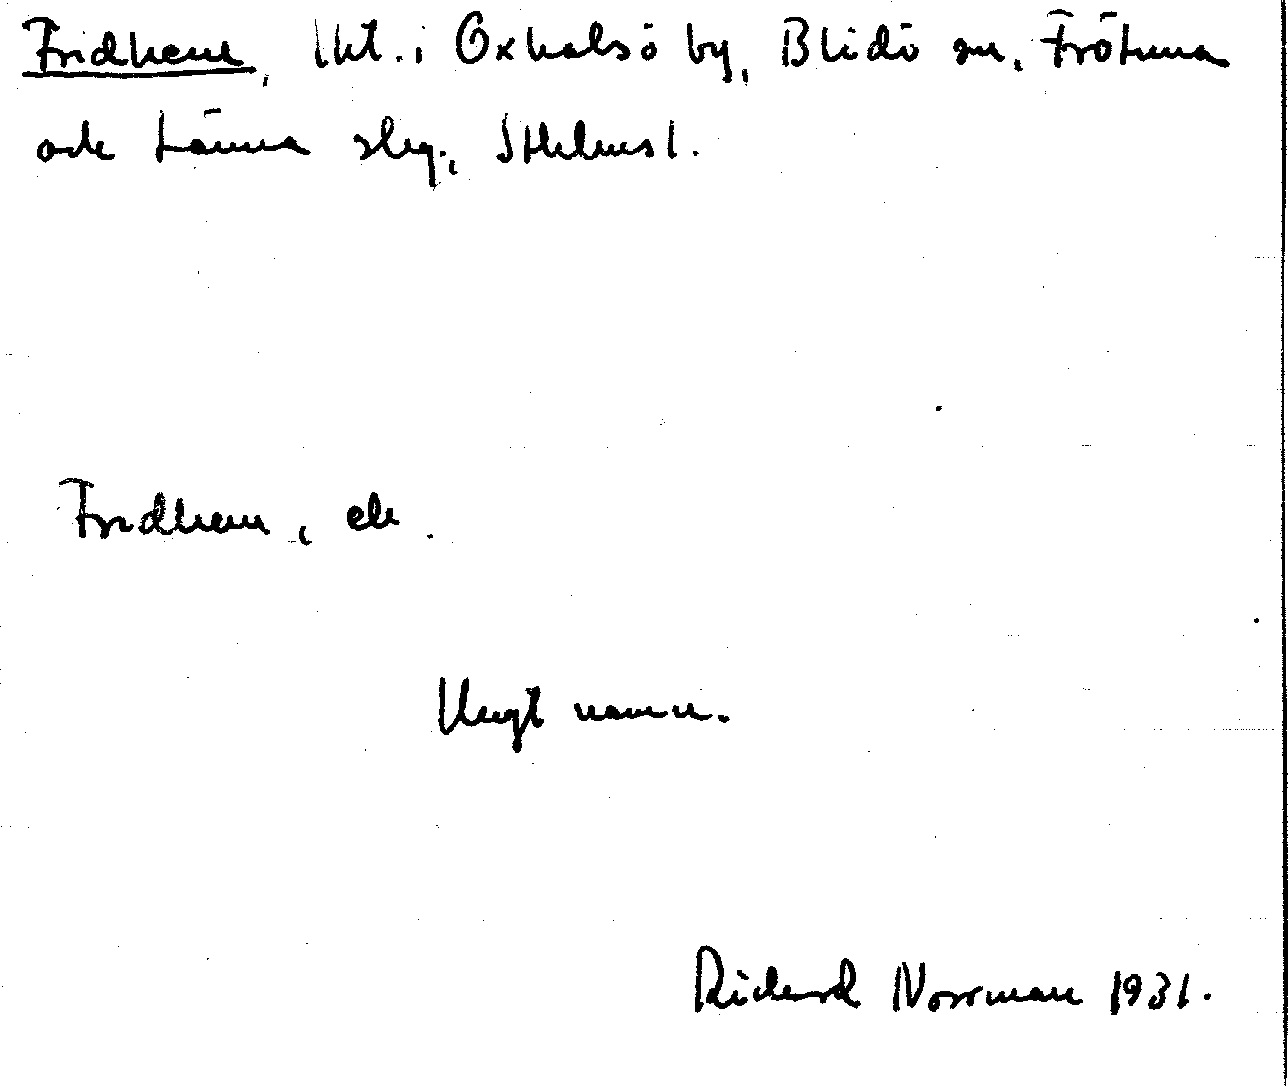 Fridhem, lht. i Oxhalsö by, Blidö sn, Frötuna
och Länna slg., Sthlms l.
Fridhem, el.
Ungt namn.
Rickard Norrman 1931.